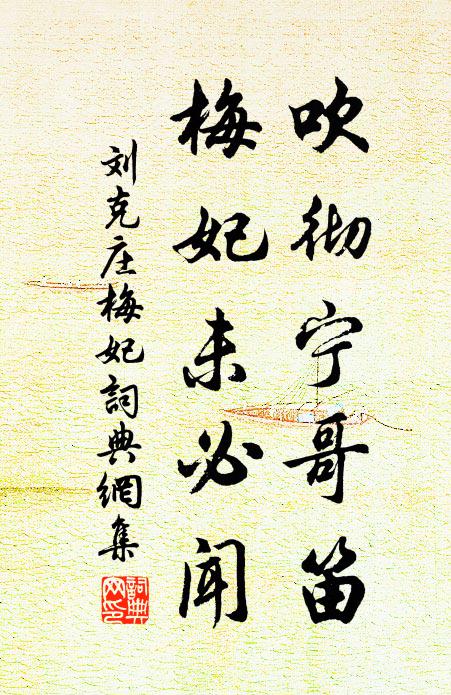 吹彻宁哥笛
梅妃未必闻
刘克庄梅妃詞典網集
詞典网印